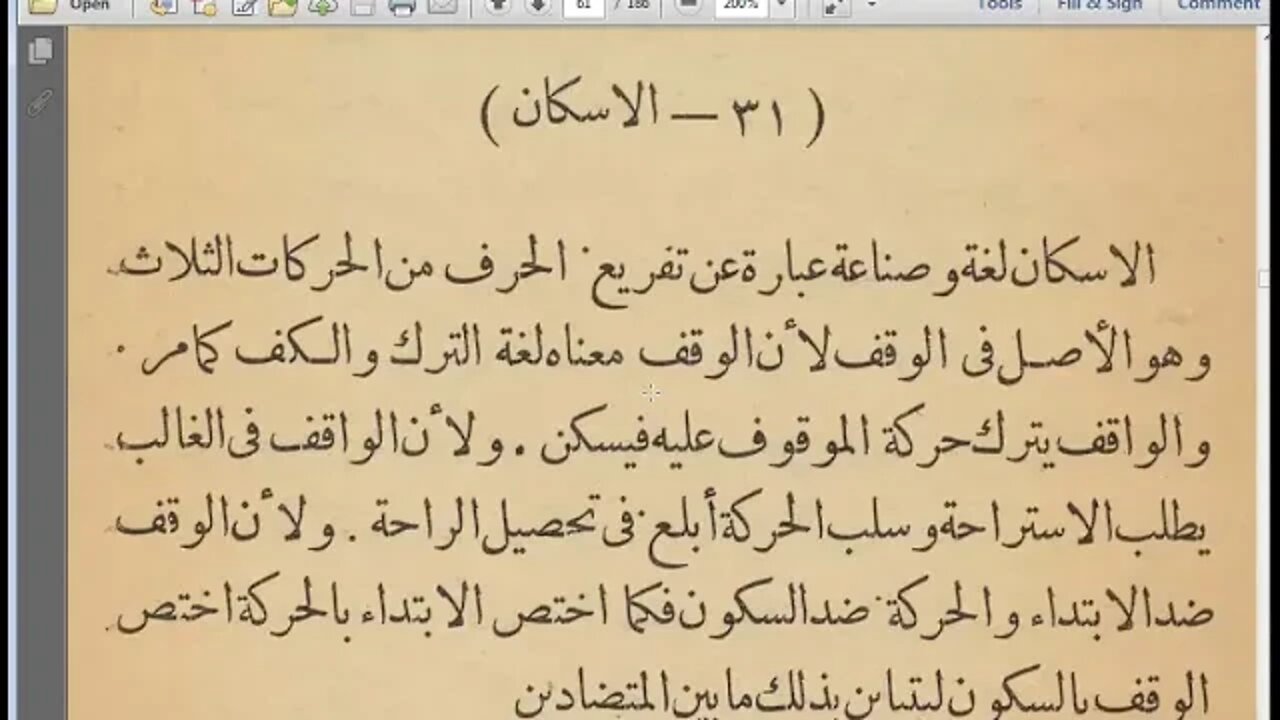 Open 61 / 186 200% Tools Fill & Sign Comment
( ٣١ — الاسكان )
الاسكان لغة وصناعة عبارة عن تفريغ الحرف من الحركات الثلاث
وهو الأصل فى الوقف لأن الوقف معناه لغة الترك والكف كما مر .
والواقف يترك حركة الموقوف عليه فيسكن . ولأن الواقف فى الغالب
يطلب الاستراحة وسلب الحركة أبلغ فى تحصيل الراحة . ولأن الوقف
ضد الابتداء والحركة ضد السكون فكما اختص الابتداء بالحركة اختص
الوقف بالسكون ليتباين بذلك ما بين المتضادين